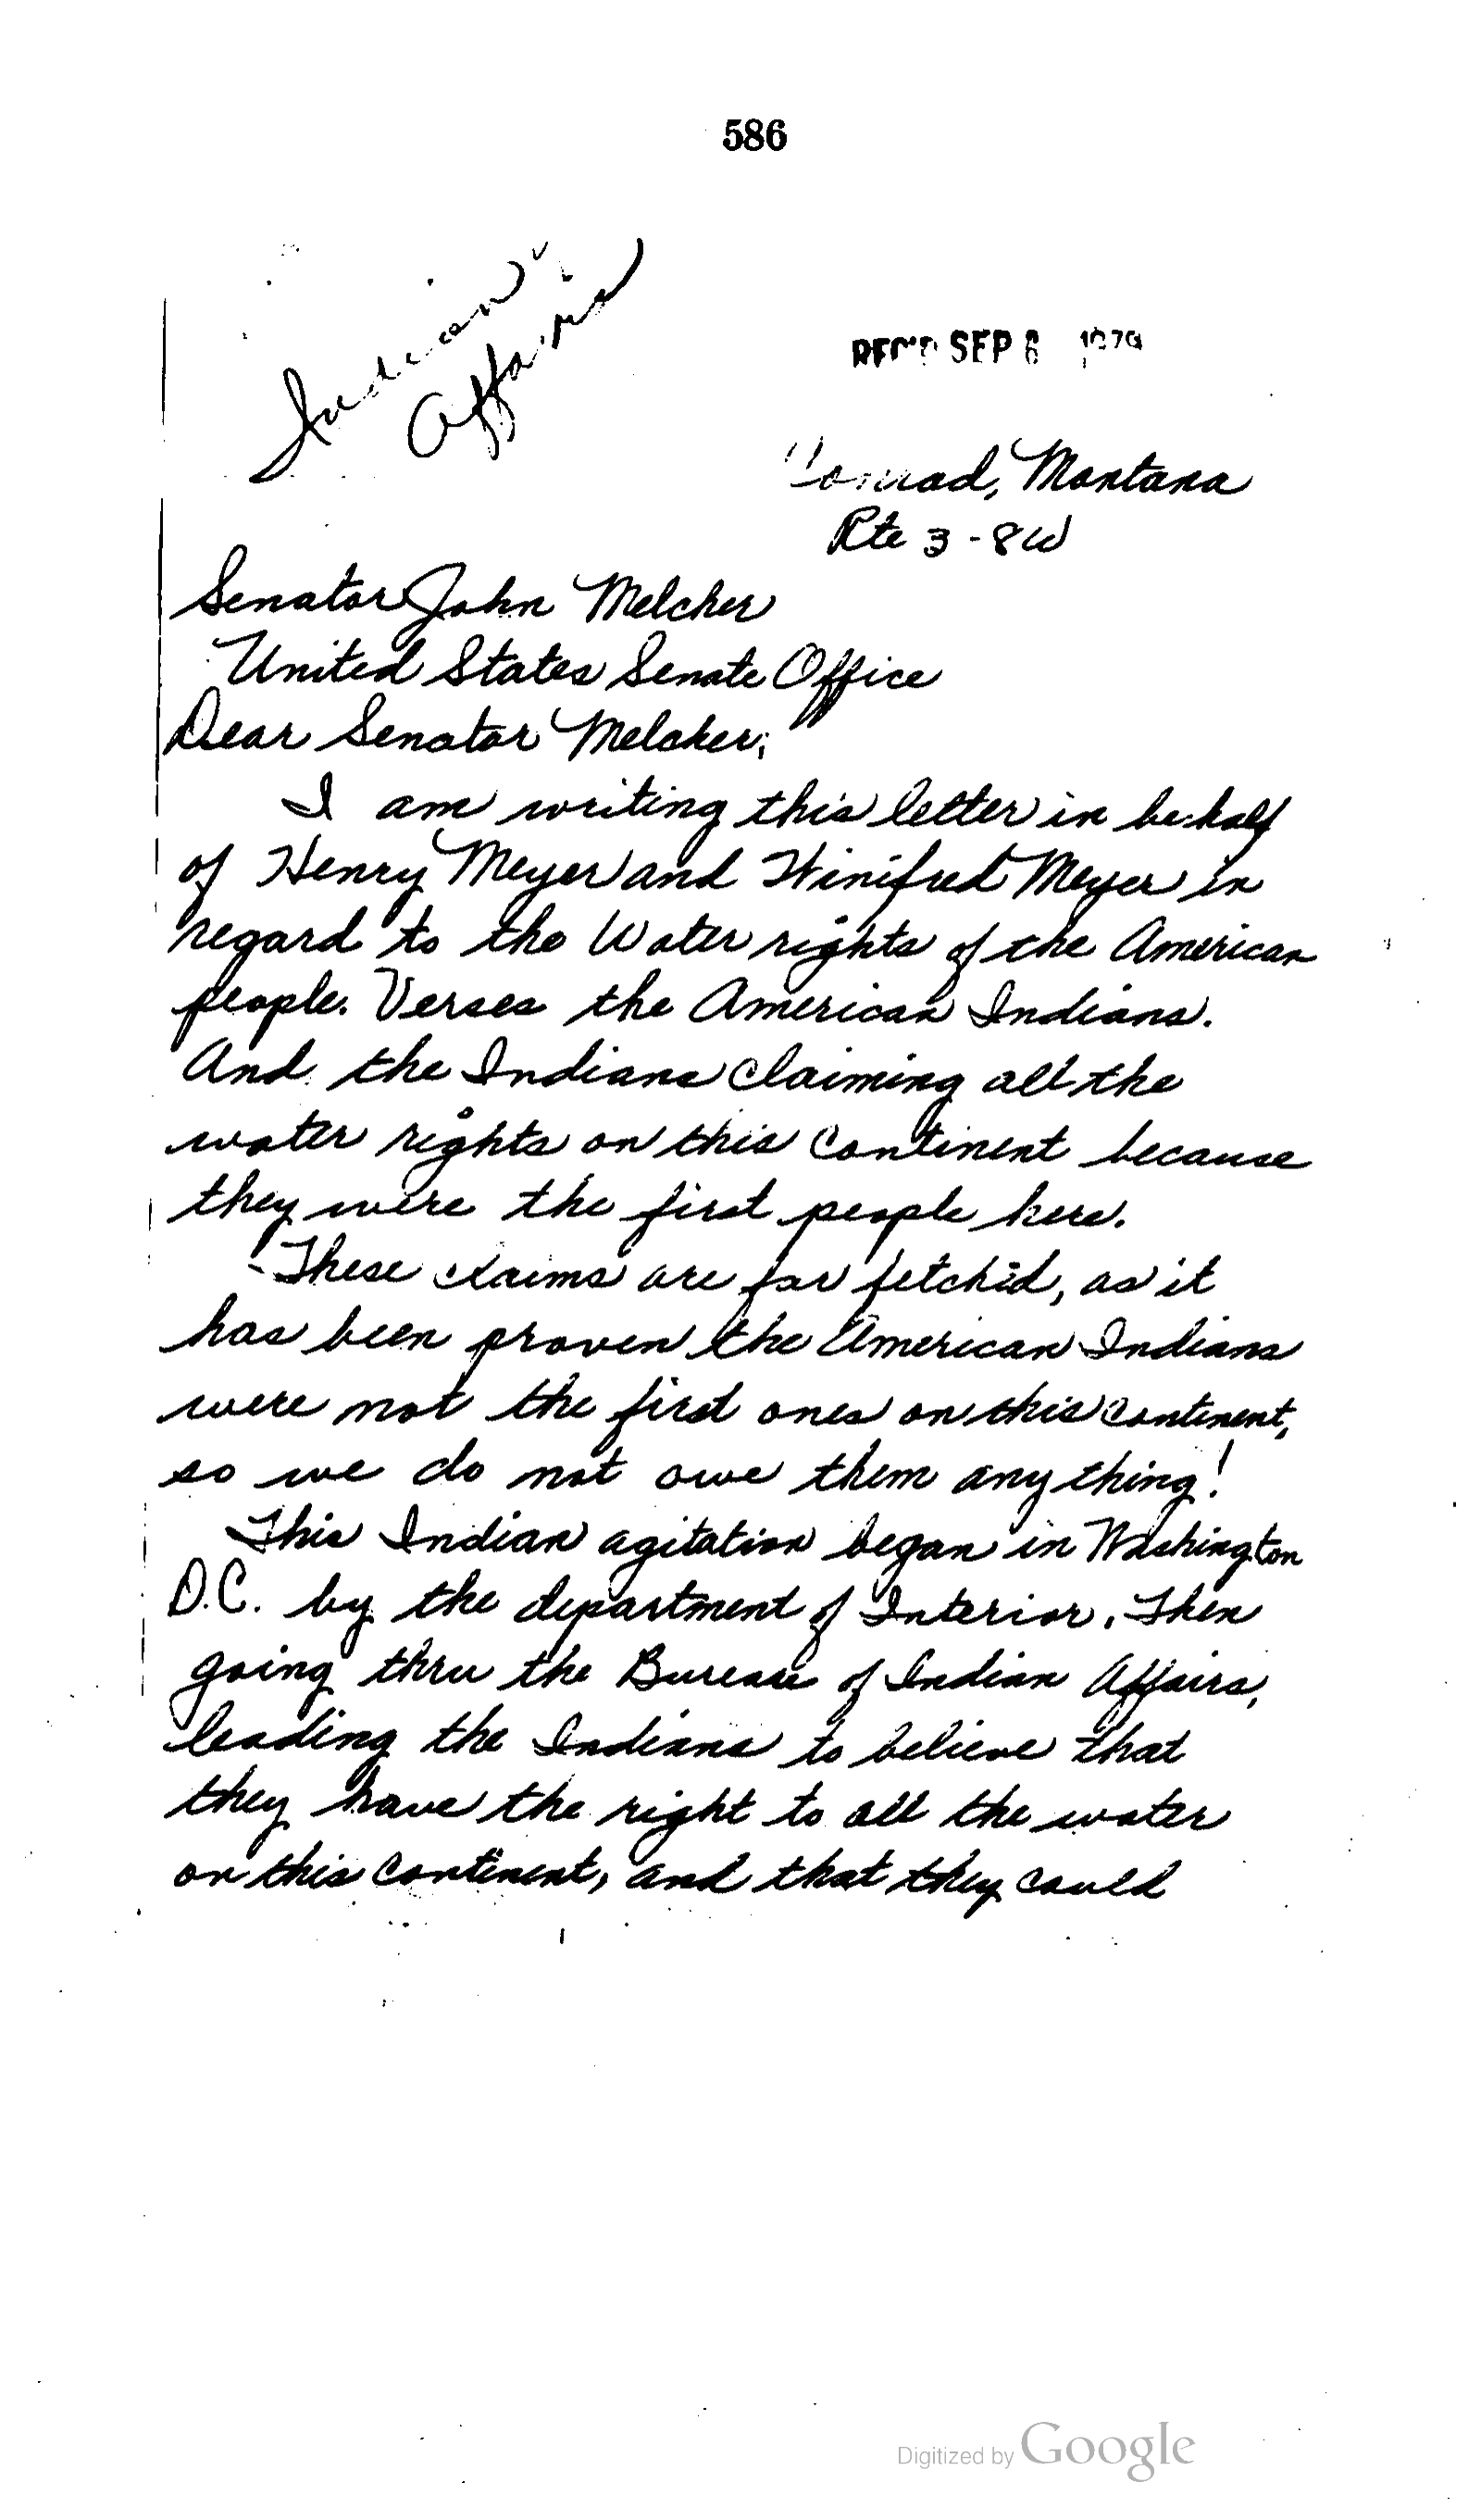 586
Indian
Affairs
REC'D SEP 6 1979
Conrad, Montana
Rte 3-8W
Senator John Melcher
United States Senate Office
Dear Senator Melcher;
I am writing this letter in behalf
of Henry Meyer and Winifred Meyer in
regard to the Water rights of the American
people. Verses the American Indians.
And the Indians Claiming all the
water rights on this Continent because
they were the first people here.
These claims are far fetchid, as it
has been proven the American Indians
were not the first ones on this Continent,
so we do not owe them anything!
This Indian agitation began in Washington
D.C. by the department of Interior. Then
going thru the Bureau of Indian Affairs,
leading the Indians to believe that
they have the right to all the water
on this Continent, and that they could
Digitized by Google